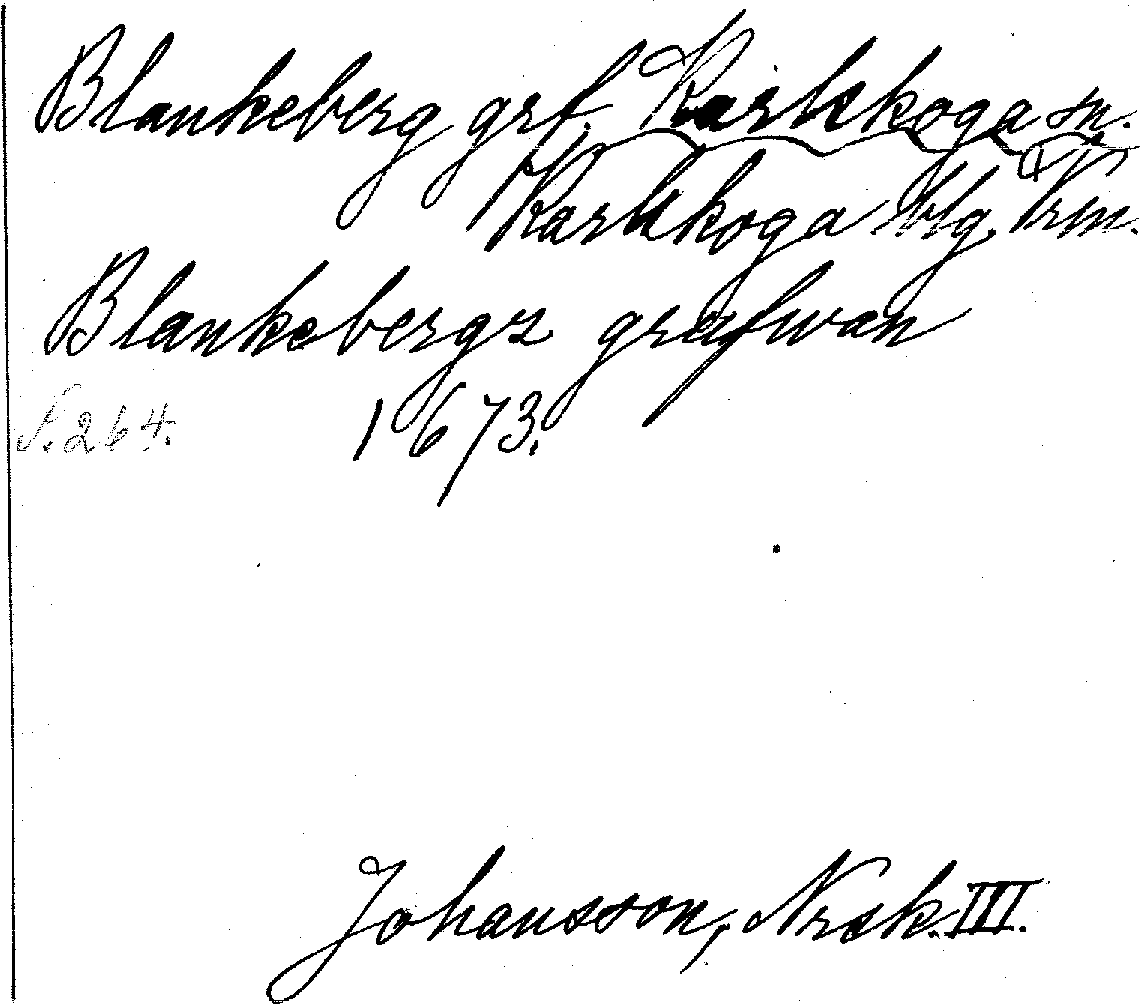 Blankeberg grf. Karlskoga sn.
Karlskoga blg, Vrm.
Blankebergz grufwan
S. 264. 1673.
Johansson, Nrsk. III.